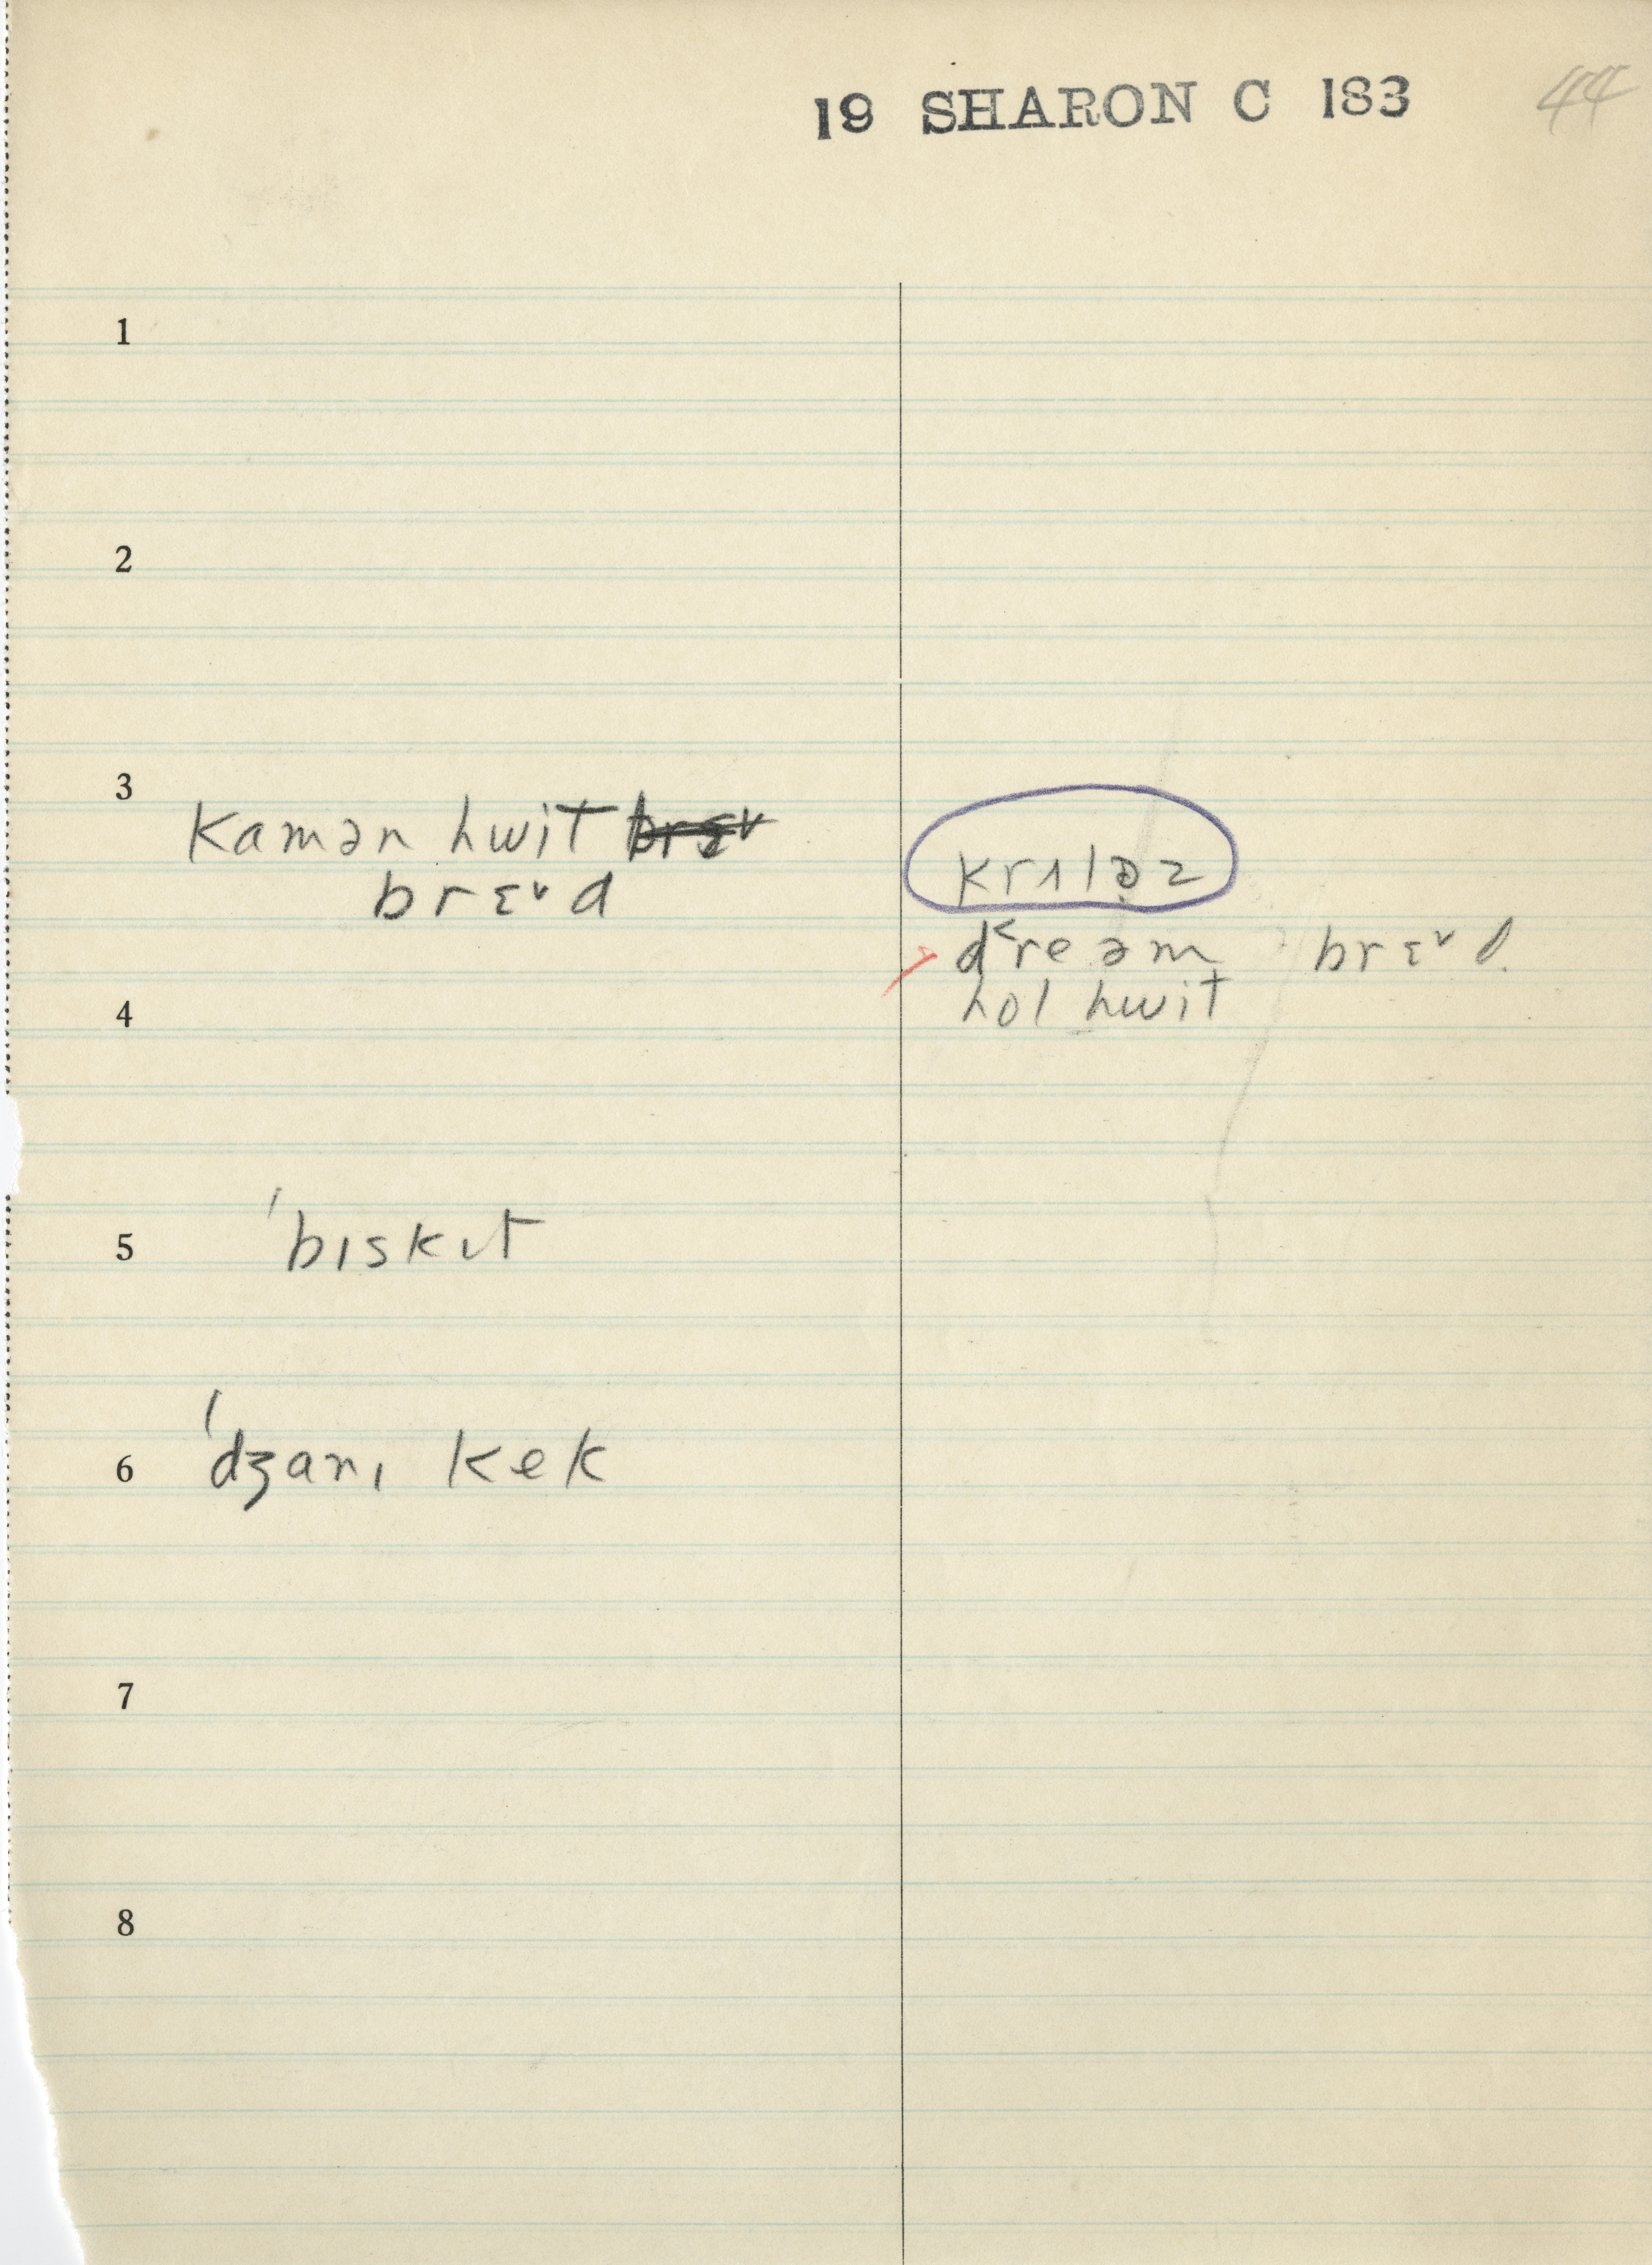 19 SHARON C 183
44
1
2
3
kamən hwit
brɛ˅d
krɪləz
greəm brɛ˅d
hol hwit
4
5
ˈbɪskɪt
6
ˈdʒanɪ kek
7
8